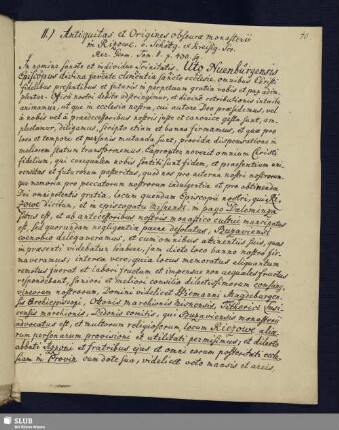 70
II.) Antiquitas et Origines obscura monasterii
in Rizowe. v. Schöttg. et Kreysig. Scr.
Rer. Germ. Tom. 2. p. 430. sq.
In nomine sancte et individue Trinitatis. Uto Nuenburgensis
Episcopus divina favente clementia sancte ecclesie omnibus Christi
fidelibus presentibus et futuris in perpetuum gratia vobis et pax adim-
pleatur. Officii nostri debito astringimur, et divine retributionis intuitu
animamur, ut que in ecclesia nostra, cui autore Deo presidemus, vel
a nobis vel a predecessoribus nostris juste et canonice gesta sunt, am-
plectamur, diligamus, scripto etiam et banno firmemus, et que pro
loco et tempore et personis mutanda sunt, provida dispensatione in
meliorem statum transformemus. Eapropter noverit omnium Christi
fidelium, qui consequuntur nobis fidem, et presentium
et futurorum posteritas, quod nos pro eterna nostri nostrorum-
que memoria pro peccatorum nostrorum indulgentia et pro obtinenda
Dei omnipotentis gratia, locum quendam Episcopii nostri, qui Ri-
zowe dicitur, et in episcopatu Misnensi in pago Dalemenza
situs est, et ab antecessoribus nostris monastico cultui mancipatus
est, sed quorundam negligentia paene desolatus, Buzaviensi
coenobio delegaveramus, et cum omnibus attinentiis suis, quas
in presenti videbatur habere, jam dicto loco banno nostro fir-
maveramus; interea vero, quia locus memoratus aliquantum
remotus fuerat et labori fructum et impensis non aequales fructus
respondebant, saniori et meliori consilio dilectissimorum consang-
vineorum nostrorum, Domini videlicet Wicmanni Magdeburgen-
sis Archiepiscopi, Otonis marchionis misnensis, Tethorici Lusi-
censis marchionis, Dedonis comitis, qui Buzaviensis monasterii
advocatus est, et multorum religiosorum locum Riezowe alia-
rum personarum provisioni et utilitati permisimus, et dilecto
abbati Epponi et fratribus ejus et omni eorum posteritati eccle-
siam in Provin cum dote sua, videlicet octo mansis et areis,
SLUB